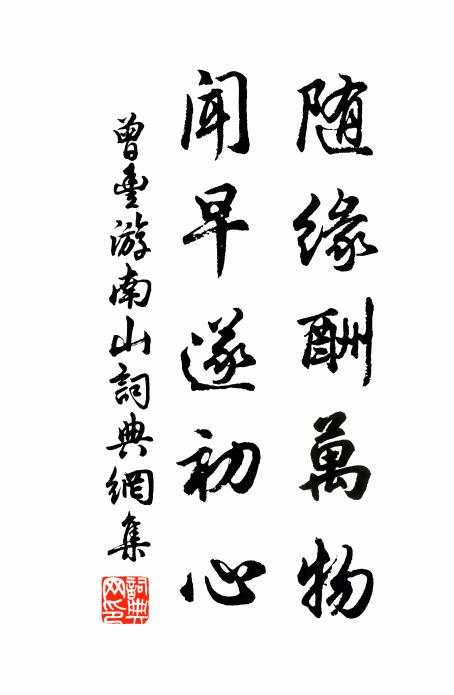 随缘酬萬物
闻早遂初心
曾豐游南山詞典網集
詞典网印